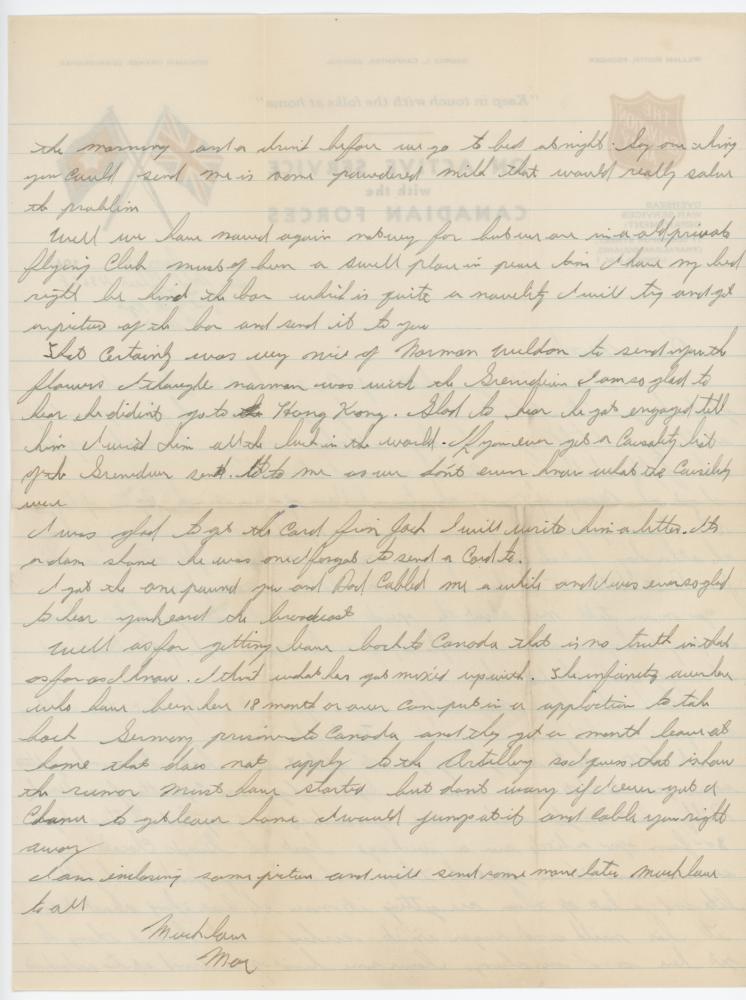 the morning and a drink before we go to bed at night. Say one thing
you could send me is some powdered milk that would really solve
the problim
Well we have moved again not very far but we are in a old private
flying Club must of been a swell place in peace time I have my bed
right be hind the bar which is quite a novelity I will try and get
a picture of the bar and send it to you
That Certainly was very nice of Norman Weldon to send you the
flowers I thought norman was with the Grenediers I am so glad to
hear he didint go to Hong Kong. Glad to hear he got engaged tell
him I wish him all the luck in the world. If you ever get a Causality list
of the Grenediers send it to me as we don't even know what the Causilitys
were
I was glad to get the Card from Jack I will write him a letter. Its
a dam shame he was one I forgot to send a Card to.
I got the one pound you and Dad Cabled me a while and I was ever so glad
to hear you heard the broadcast
Well as for getting leave back to Canada that is no truth in that
as far as I know. I think what has got mixed up with. The infinitry over here
who have been here 18 month or over can put in a application to take
back Germany prisoners to Canada and they get a month leave at
home that does not apply to the Artillery so I guess that is how
the rumor must have started but dont worry if I ever get a
Chance to get leave home I would jump at it and Cable you right
away
I am inclosing some picture and will send some more later Much love
to all
Much love